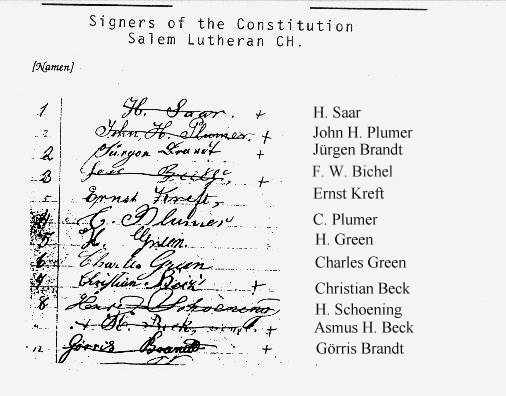 Signers of the Constitution
Salem Lutheran CH.
[Namen]
1 H. Saar. + H. Saar
2 John H. Plumer. + John H. Plumer
2 Jürgen Brandt + Jürgen Brandt
3 + F. W. Bichel
5 Ernst Kreft, Ernst Kreft
4 C. Plumer C. Plumer
5 H. Green. H. Green
6 Charles Green Charles Green
Christian Beck + Christian Beck
8 H. Schoening H. Schoening
H. Beck, + Asmus H. Beck
12 Görris Brandt + Görris Brandt